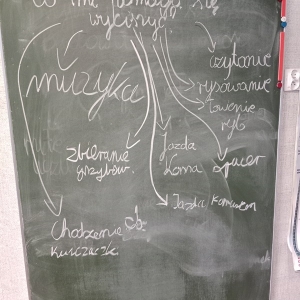 Co mi pomaga się
wyciszyć?
muzyka
czytanie
rysowanie
łowienie
ryb
zbieranie
grzybów.
Jazda
konna
spacer
Jazda
Chodzenie